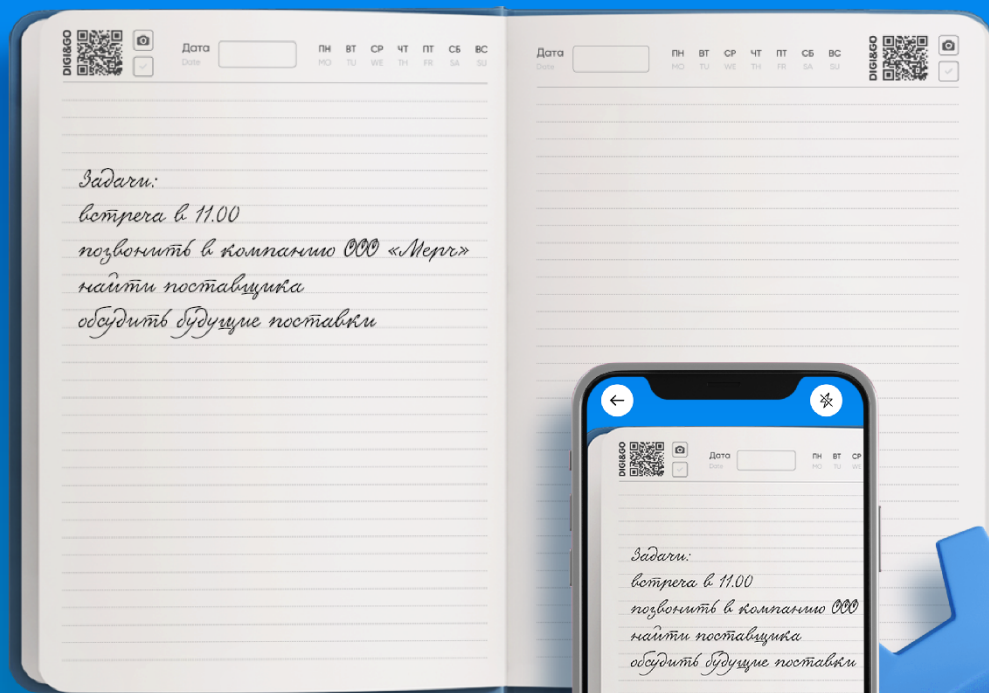 DIGI&GO
Дата
Date
ПН ВТ СР ЧТ ПТ СБ ВС
MO TU WE TH FR SA SU
Задачи:
встреча в 11.00
позвонить в компанию ООО «Мерч»
найти поставщика
обсудить будущие поставки
Дата
Date
ПН ВТ СР ЧТ ПТ СБ ВС
MO TU WE TH FR SA SU
DIGI&GO
DIGI&GO
Дата
Date
ПН ВТ СР
MO TU WE
Задачи:
встреча в 11.00
позвонить в компанию ООО
найти поставщика
обсудить будущие поставки